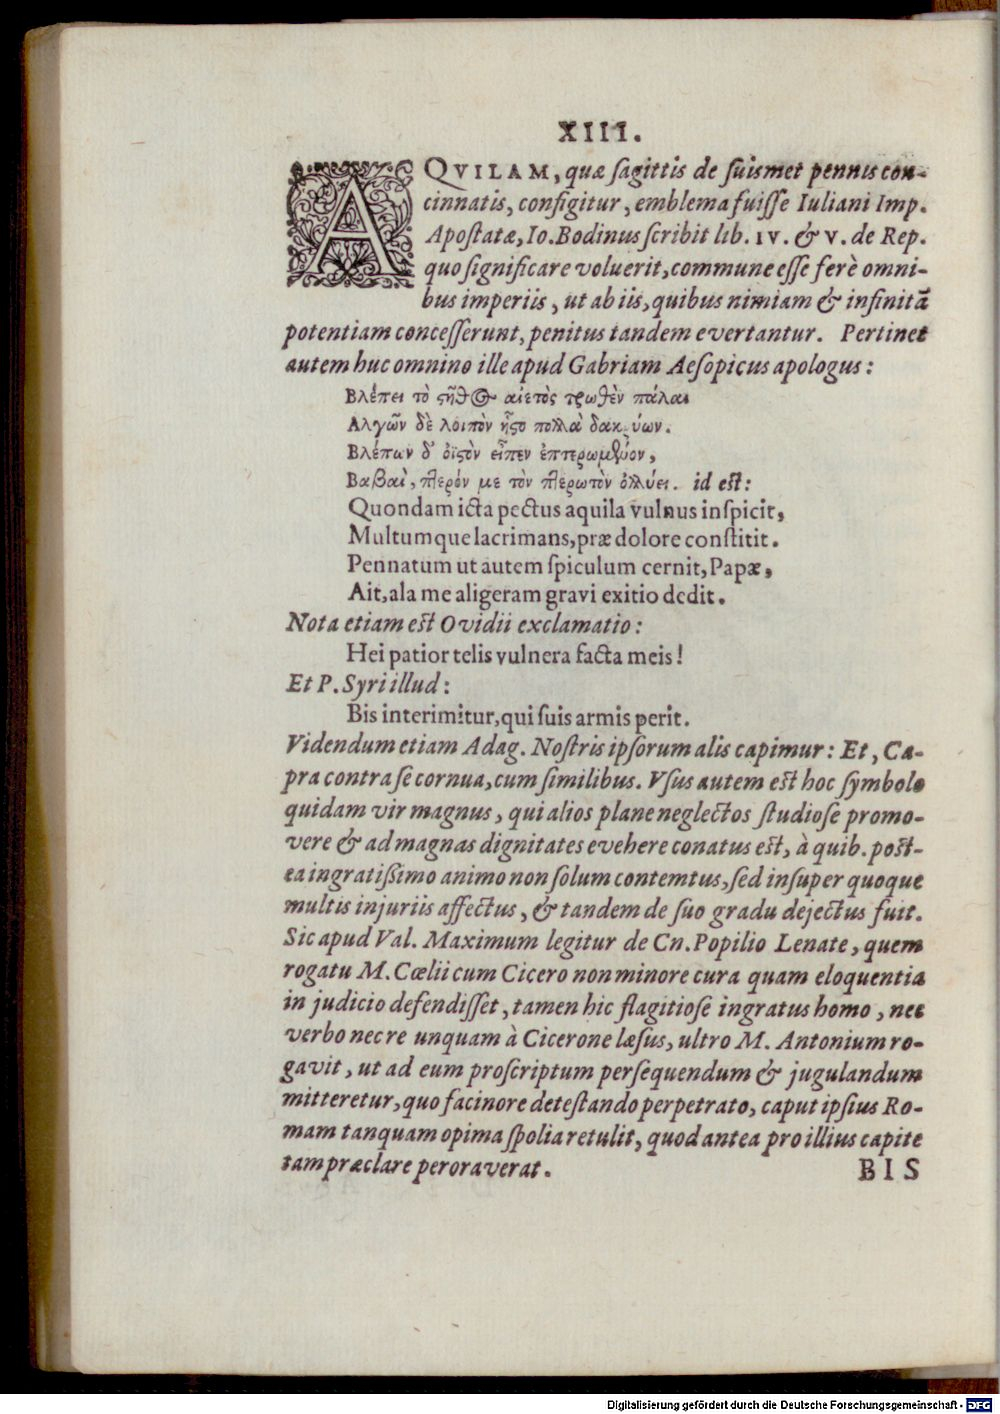 XIII.
AQVILAM, quæ ſagittis de ſuismet pennis con-
cinnatis, configitur, emblema fuiſſe Iuliani Imp.
Apoſtatæ, Io. Bodinus ſcribit lib. IV. & V. de Rep.
quo ſignificare voluerit, commune eſſe ferè omni-
bus imperiis, ut ab iis, quibus nimiam & infinitā
potentiam conceſſerunt, penitus tandem evertantur. Pertinet
autem huc omnino ille apud Gabriam Aeſopicus apologus:
Βλέπει τὸ ϛῆθος αἰετὸς τρωθὲν πάλαι
Αλγῶν δὲ λοιπὸν ἧϛο πολλὰ δακρύων.
Βλέπων δ' οἰϛὸν εἶπεν ἐπτερωμένον,
Βαβαὶ, πτερόν με τὸν πτερωτὸν ὀλλύει. id eſt:
Quondam icta pectus aquila vulnus inſpicit,
Multumque lacrimans, præ dolore conſtitit.
Pennatum ut autem ſpiculum cernit, Papæ,
Ait, ala me aligeram gravi exitio dedit.
Nota etiam eſt Ovidii exclamatio:
Hei patior telis vulnera facta meis!
Et P. Syri illud:
Bis interimitur, qui ſuis armis perit.
Videndum etiam Adag. Noſtris ipſorum alis capimur: Et, Ca-
pra contra ſe cornua, cum ſimilibus. Vſus autem eſt hoc ſymbolo
quidam vir magnus, qui alios plane neglectos ſtudioſe promo-
vere & ad magnas dignitates evehere conatus eſt, à quib. poſt-
ea ingratißimo animo non ſolum contemtus, ſed inſuper quoque
multis injuriis affectus, & tandem de ſuo gradu dejectus fuit.
Sic apud Val. Maximum legitur de Cn. Popilio Lenate, quem
rogatu M. Cœlii cum Cicero non minore cura quam eloquentia
in judicio defendiſſet, tamen hic flagitioſe ingratus homo, nec
verbo nec re unquam à Cicerone læſus, ultro M. Antonium ro-
gavit, ut ad eum proſcriptum perſequendum & jugulandum
mitteretur, quo facinore deteſtando perpetrato, caput ipſius Ro-
mam tanquam opima ſpolia retulit, quod antea pro illius capite
tam præclare peroraverat. BIS
Digitalisierung gefördert durch die Deutsche Forschungsgemeinschaft - DFG